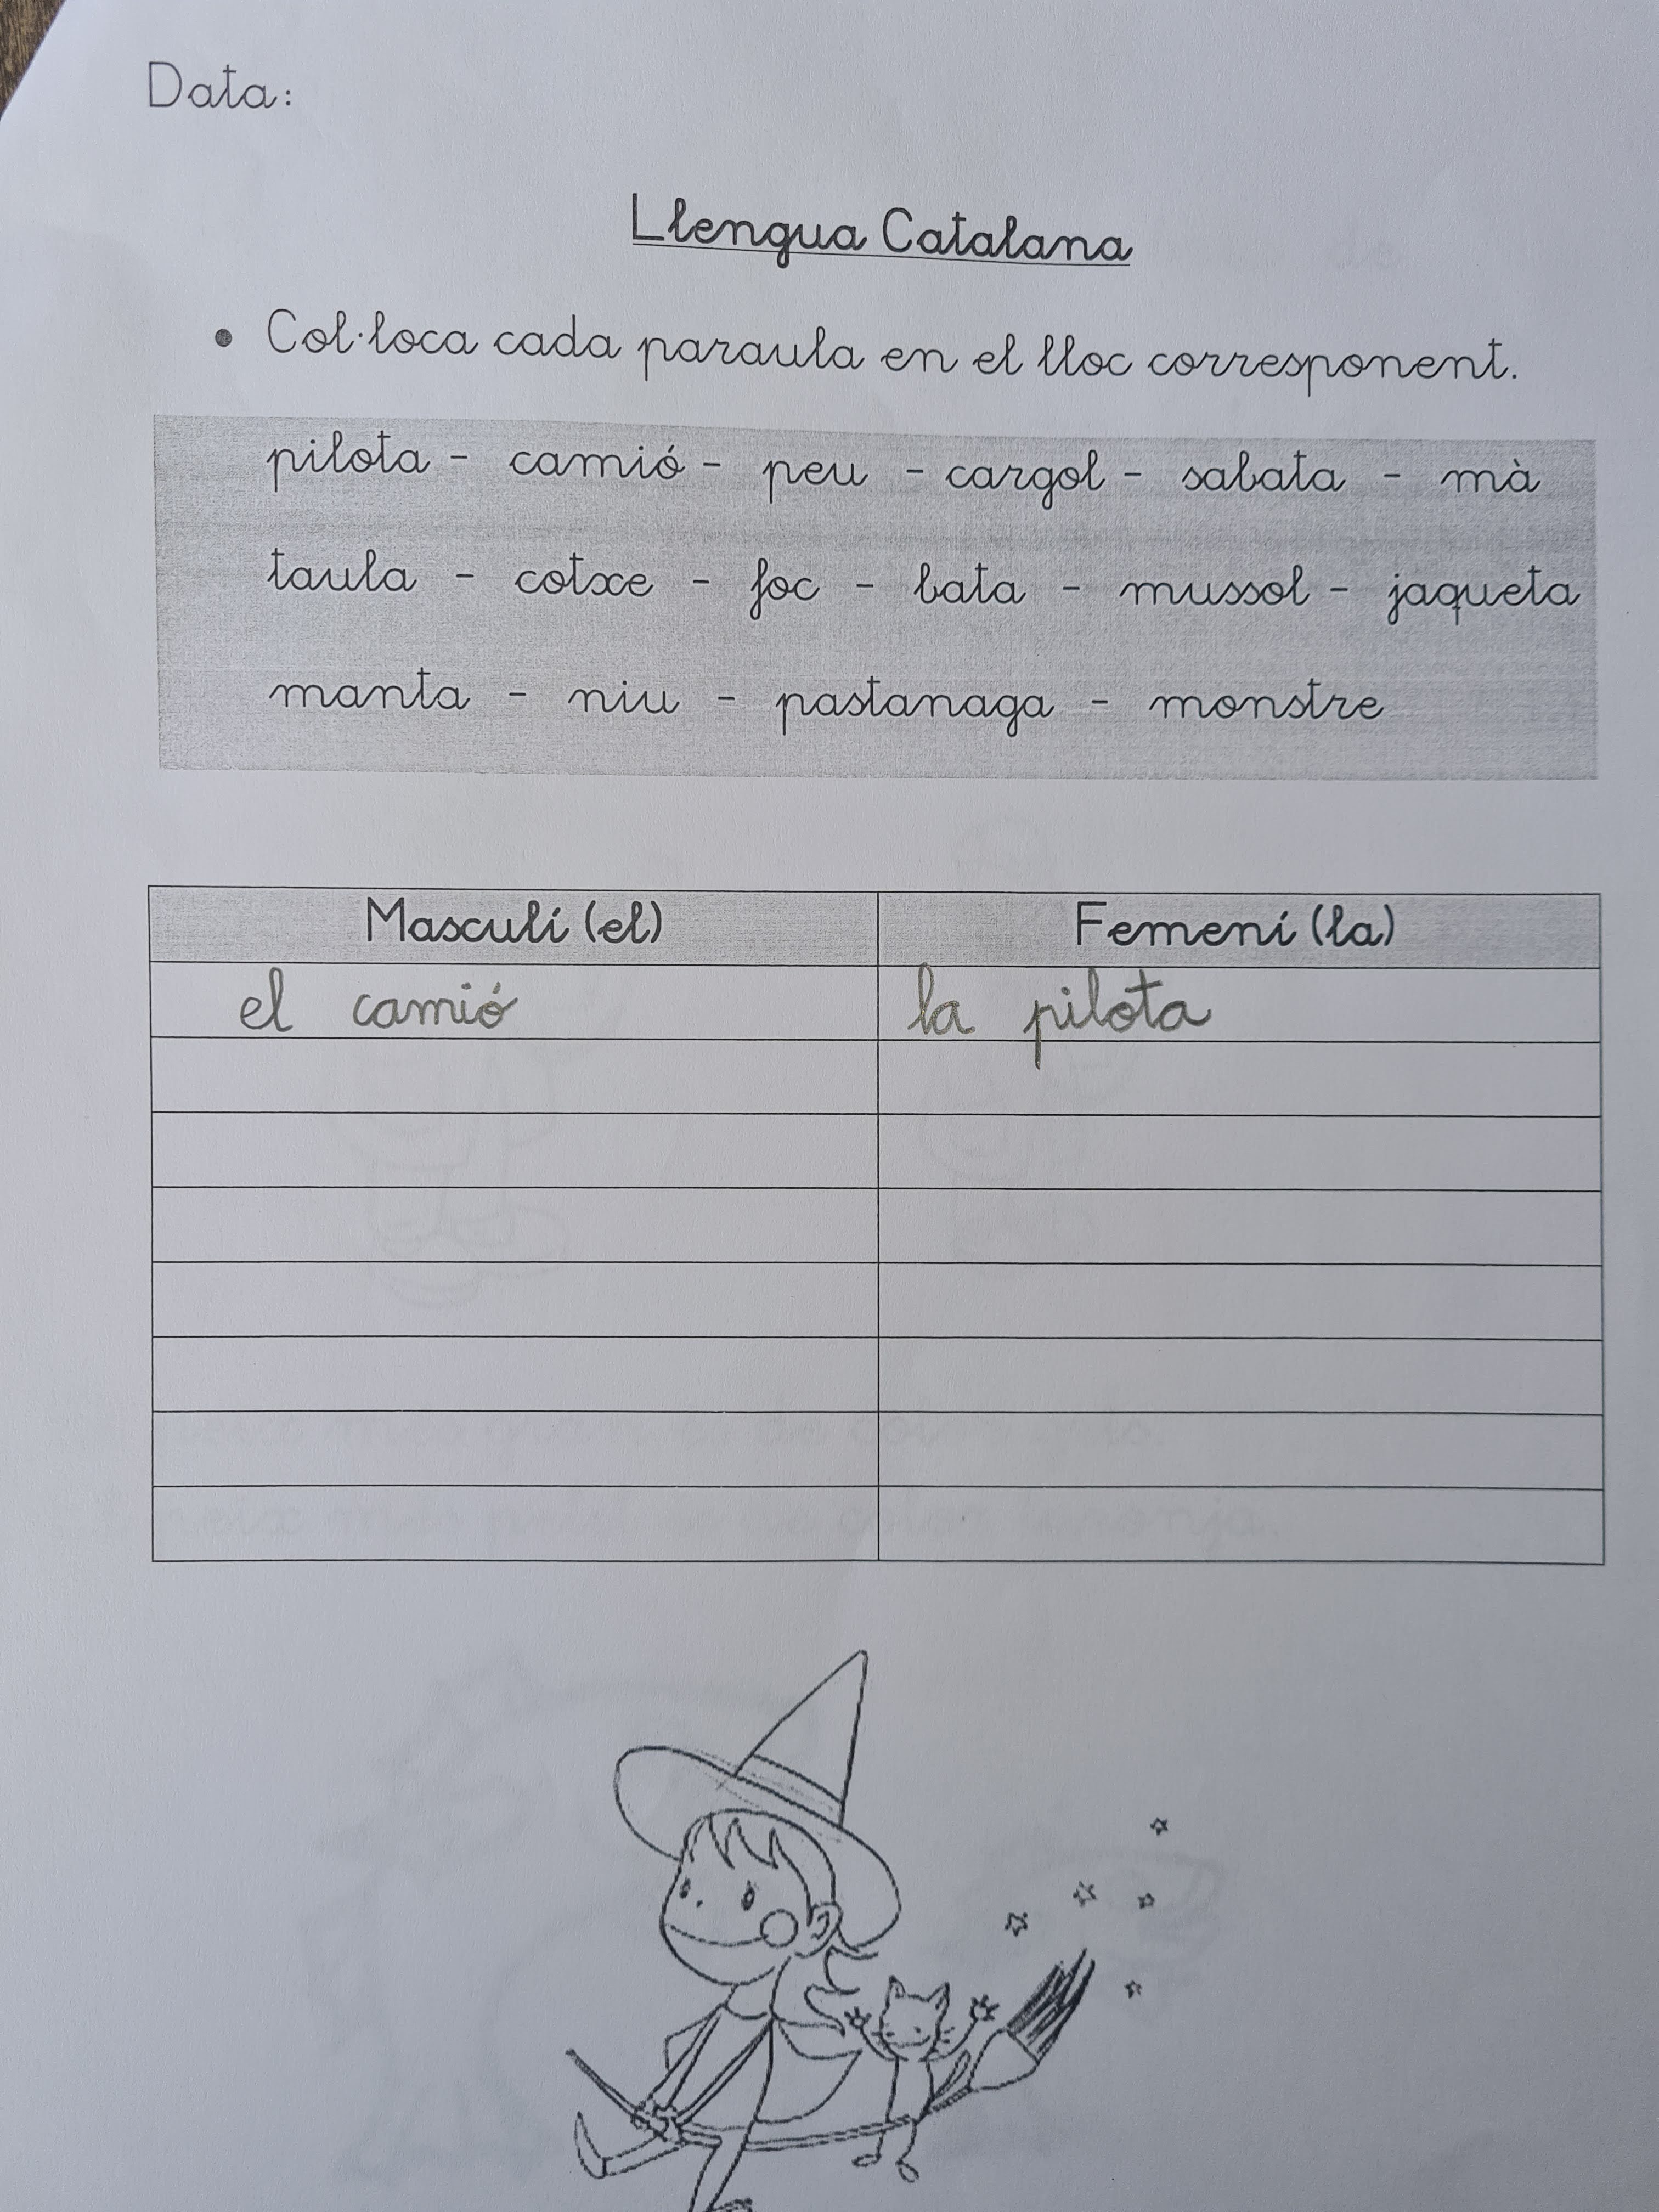 Data:
Llengua Catalana
• Col·loca cada paraula en el lloc corresponent.
pilota - camió - peu - cargol - sabata - mà
taula - cotxe - foc - bata - mussol - jaqueta
manta - niu - pastanaga - monstre
Masculí (el) Femení (la)
el camió la pilota